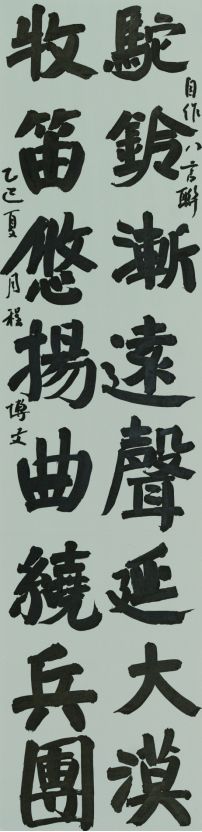 駝鈴漸遠聲延大漠
自作八言聯
牧笛悠揚曲繞兵團
乙巳夏月程博文